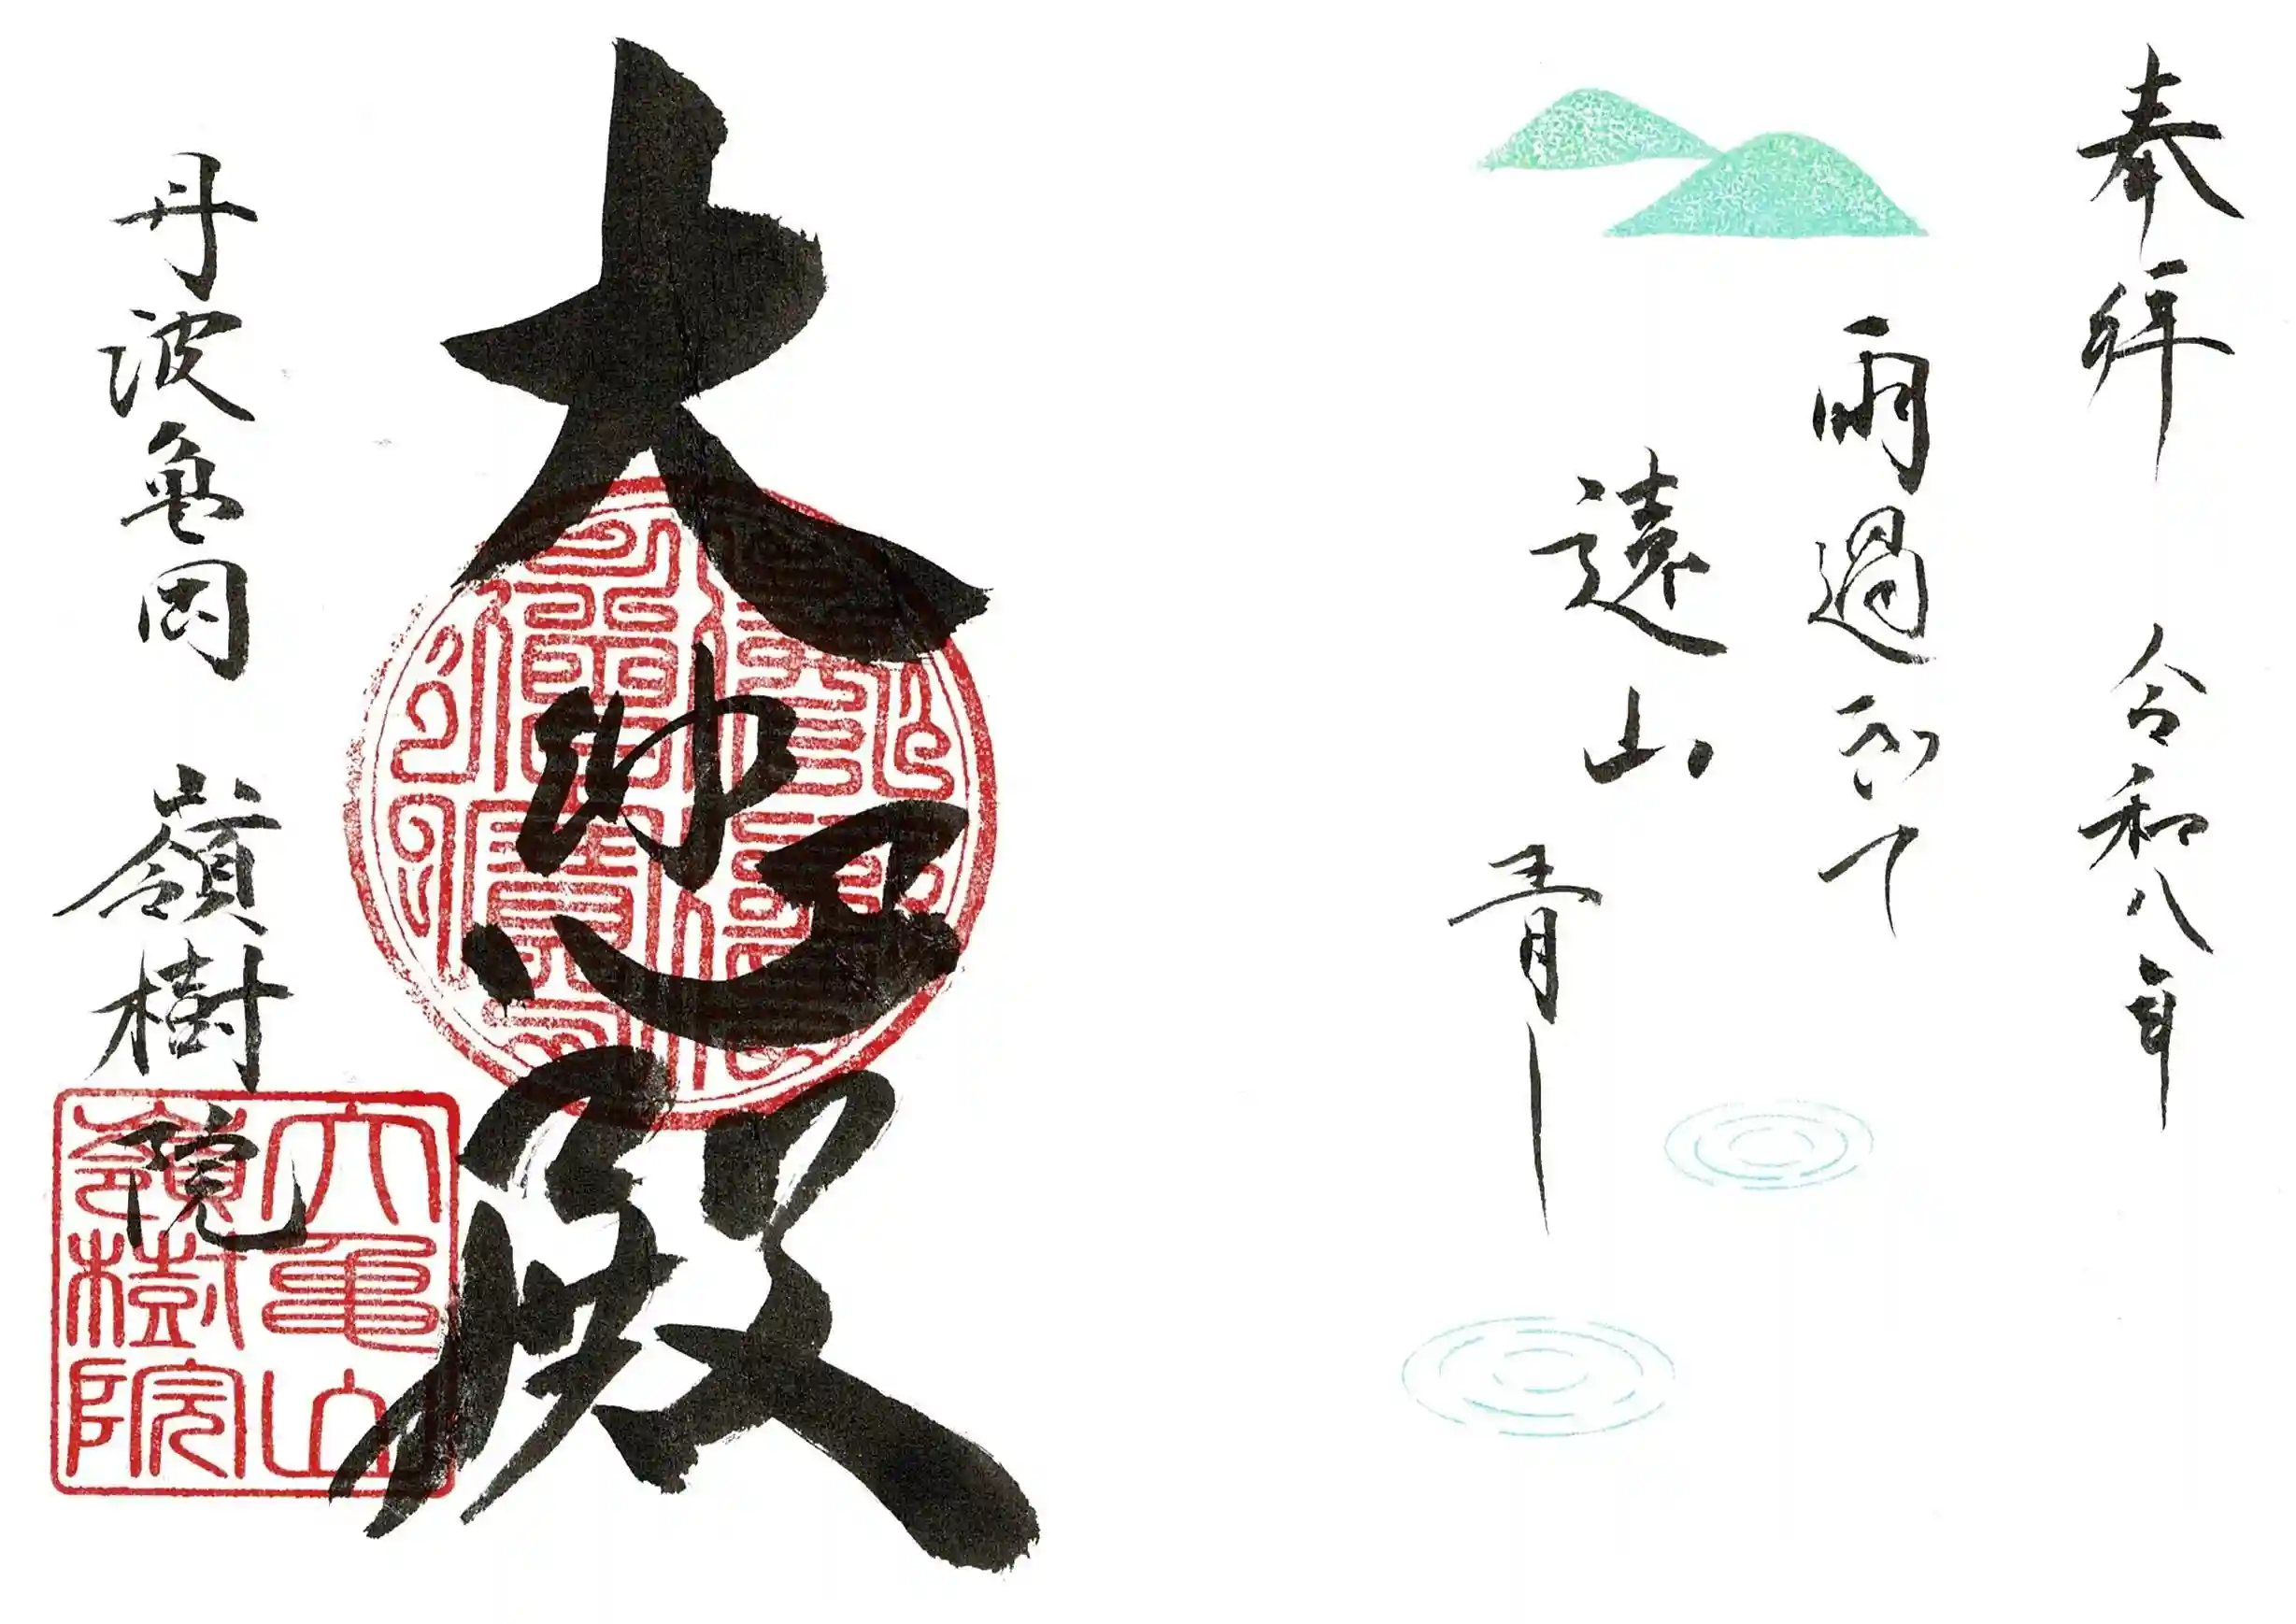 奉拝 令和八年
雨過ぎて
遠山青し
大悲殿
丹波亀岡 嶺樹院
大亀山
嶺樹院